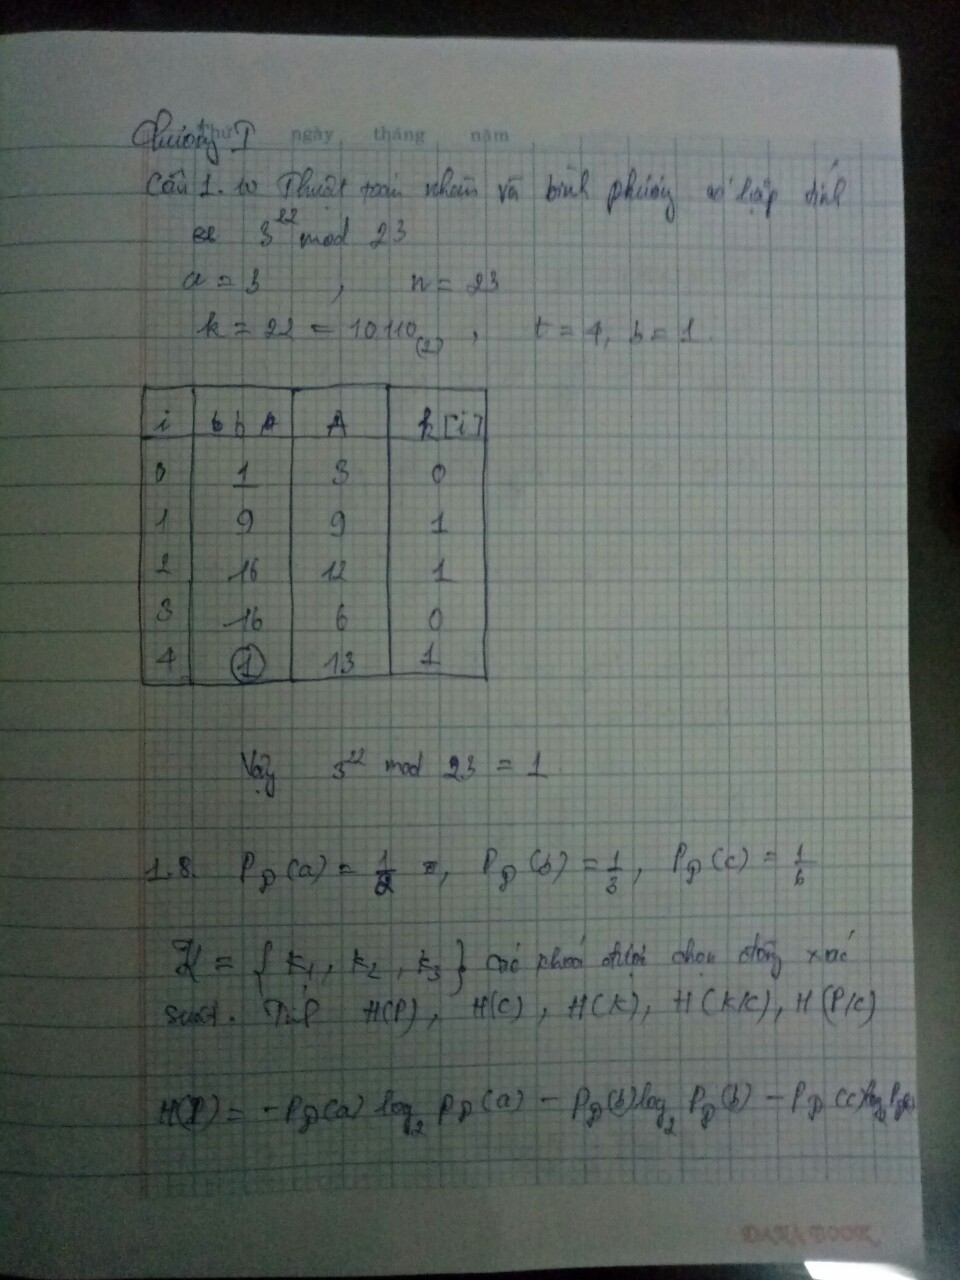 Chương I
Thứ ngày tháng năm
Câu 1. Thuật toán nhân và bình phương có lặp tính
3^22 mod 23
a = 3 , n = 23
k = 22 = 10110(2) , t = 4, b = 1.
i b A k[i]
0 1 3 0
1 9 9 1
2 16 12 1
3 16 6 0
4 1 13 1
Vậy 3^22 mod 23 = 1.
1.8. P_P(a) = 1/2, P_P(b) = 1/3, P_P(c) = 1/6
K = {k1, k2, k3} các khoá được chọn đồng xác
suất. Tính H(P), H(C), H(K), H(K/C), H(P/C)
H(P) = -P_P(a) log_2 P_P(a) - P_P(b) log_2 P_P(b) - P_P(c) log_2 P_P(c)
DAHA BOOK